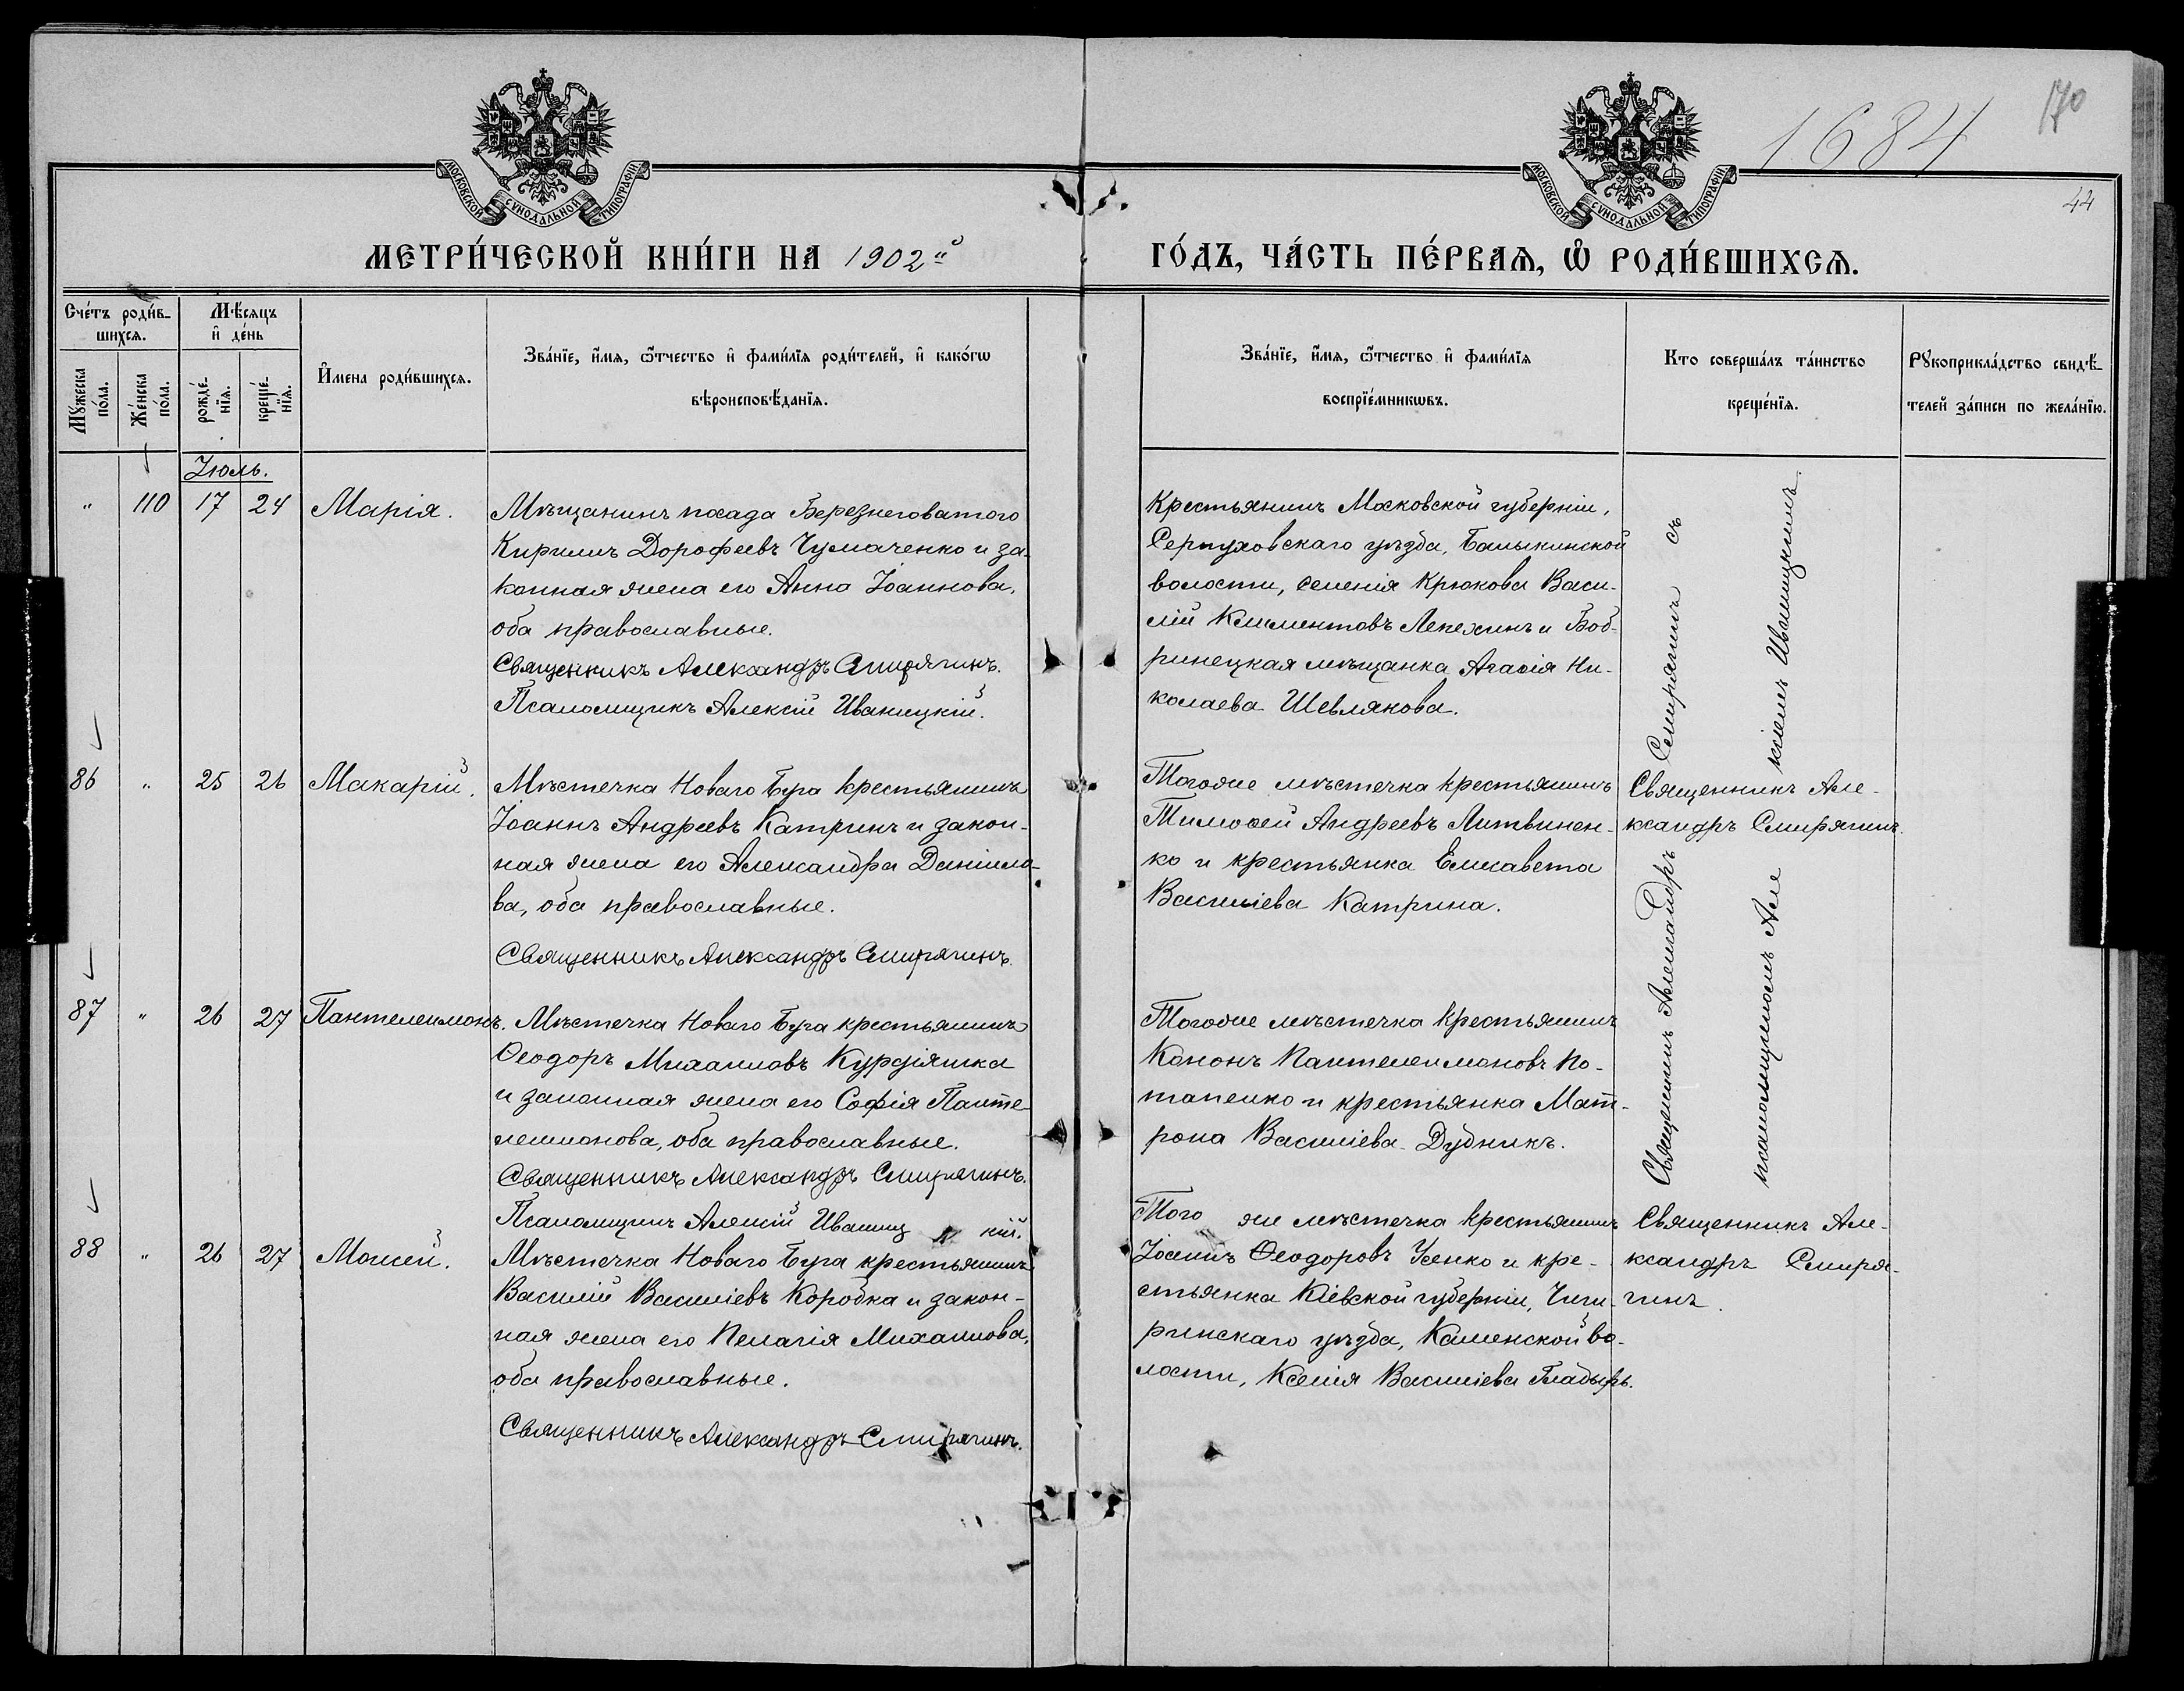 МОСКОВСКОЙ СѴНОДАЛЬНОЙ ТИПОГРАФІИ.
МОСКОВСКОЙ СѴНОДАЛЬНОЙ ТИПОГРАФІИ.
1684
170
44
МЕТРИ́ЧЕСКОЙ КНИ́ГИ НА 1902й
ГО́ДЪ, ЧА́СТЬ ПЕ́РВАѦ, Ѡ҆ РОДИ́ВШИХСѦ.
Сче́тъ роди́в-
шихсѧ.
Мѣ́сяцъ
и҆ де́нь
Мꙋ́жеска по́ла.
Же́нска по́ла.
рожде́-
нїѧ.
креще́-
нїѧ.
И҆мена роди́вшихсѧ.
Зва́нїе, и҆́мѧ, ѻ҆́тчество и҆ фами́лїѧ роди́телей, и҆ како́гѡ
вѣроисповѣ́данїѧ.
Зва́нїе, и҆́мѧ, ѻ҆́тчество и҆ фами́лїѧ
воспрїе́мникѡвъ.
Кто соверша́лъ та́инство
креще́нїѧ.
Рꙋкоприкла́дство свидѣ́-
телей за́писи по жела́нїю.
Іюль.
" 110 17 24 Марія.
Мѣщанинъ посада Березнеговатого
Кирилъ Дорофеевъ Чумаченко и за-
конная жена его Анна Іоаннова,
оба православные.
Священникъ Александръ Смирягинъ.
Псаломщикъ Алексій Иваницкій.
Крестьянинъ Московской губерніи,
Серпуховскаго уѣзда, Балыкинской
волости, селенія Крюкова Васи-
лій Климентовъ Лепехинъ и Боб-
ринецкая мѣщанка Агаѳія Ни-
колаева Шевлякова.
Священникъ Александръ Смирягинъ съ
псаломщикомъ Але ксіемъ Иваницкимъ.
86 " 25 26 Макарій.
Мѣстечка Новаго Буга крестьянинъ
Іоаннъ Андреевъ Катринъ и закон-
ная жена его Александра Даніило-
ва, оба православные.
Священникъ Александръ Смирягинъ.
Тогоже мѣстечка крестьянинъ
Тимоѳей Андреевъ Литвинен-
ко и крестьянка Елисавета
Василіева Катрина.
Священникъ Але-
ксандръ Смирягинъ.
87 " 26 27 Пантелеимонъ.
Мѣстечка Новаго Буга крестьянинъ
Ѳеодоръ Михаиловъ Курдіяшка
и законная жена его Софія Панте-
леимонова, оба православные.
Священникъ Александръ Смирягинъ.
Псаломщикъ Алексій Иваниц кій.
Тогоже мѣстечка крестьянинъ
Кононъ Пантелеимоновъ По-
тапенко и крестьянка Мат-
рона Василіева Дубникъ.
88 " 26 27 Моисей.
Мѣстечка Новаго Буга крестьянинъ
Василій Василіевъ Коробка и закон-
ная жена его Пелагія Михаилова,
оба православные.
Священникъ Александръ Смирягинъ.
Того же мѣстечка крестьянинъ
Іоаннъ Ѳеодоровъ Усенко и кре-
стьянка Кіевской губерніи, Чиги-
ринскаго уѣзда, Каменской во-
лости, Ксенія Василіева Гладырь.
Священникъ Але-
ксандръ Смиря-
гинъ.